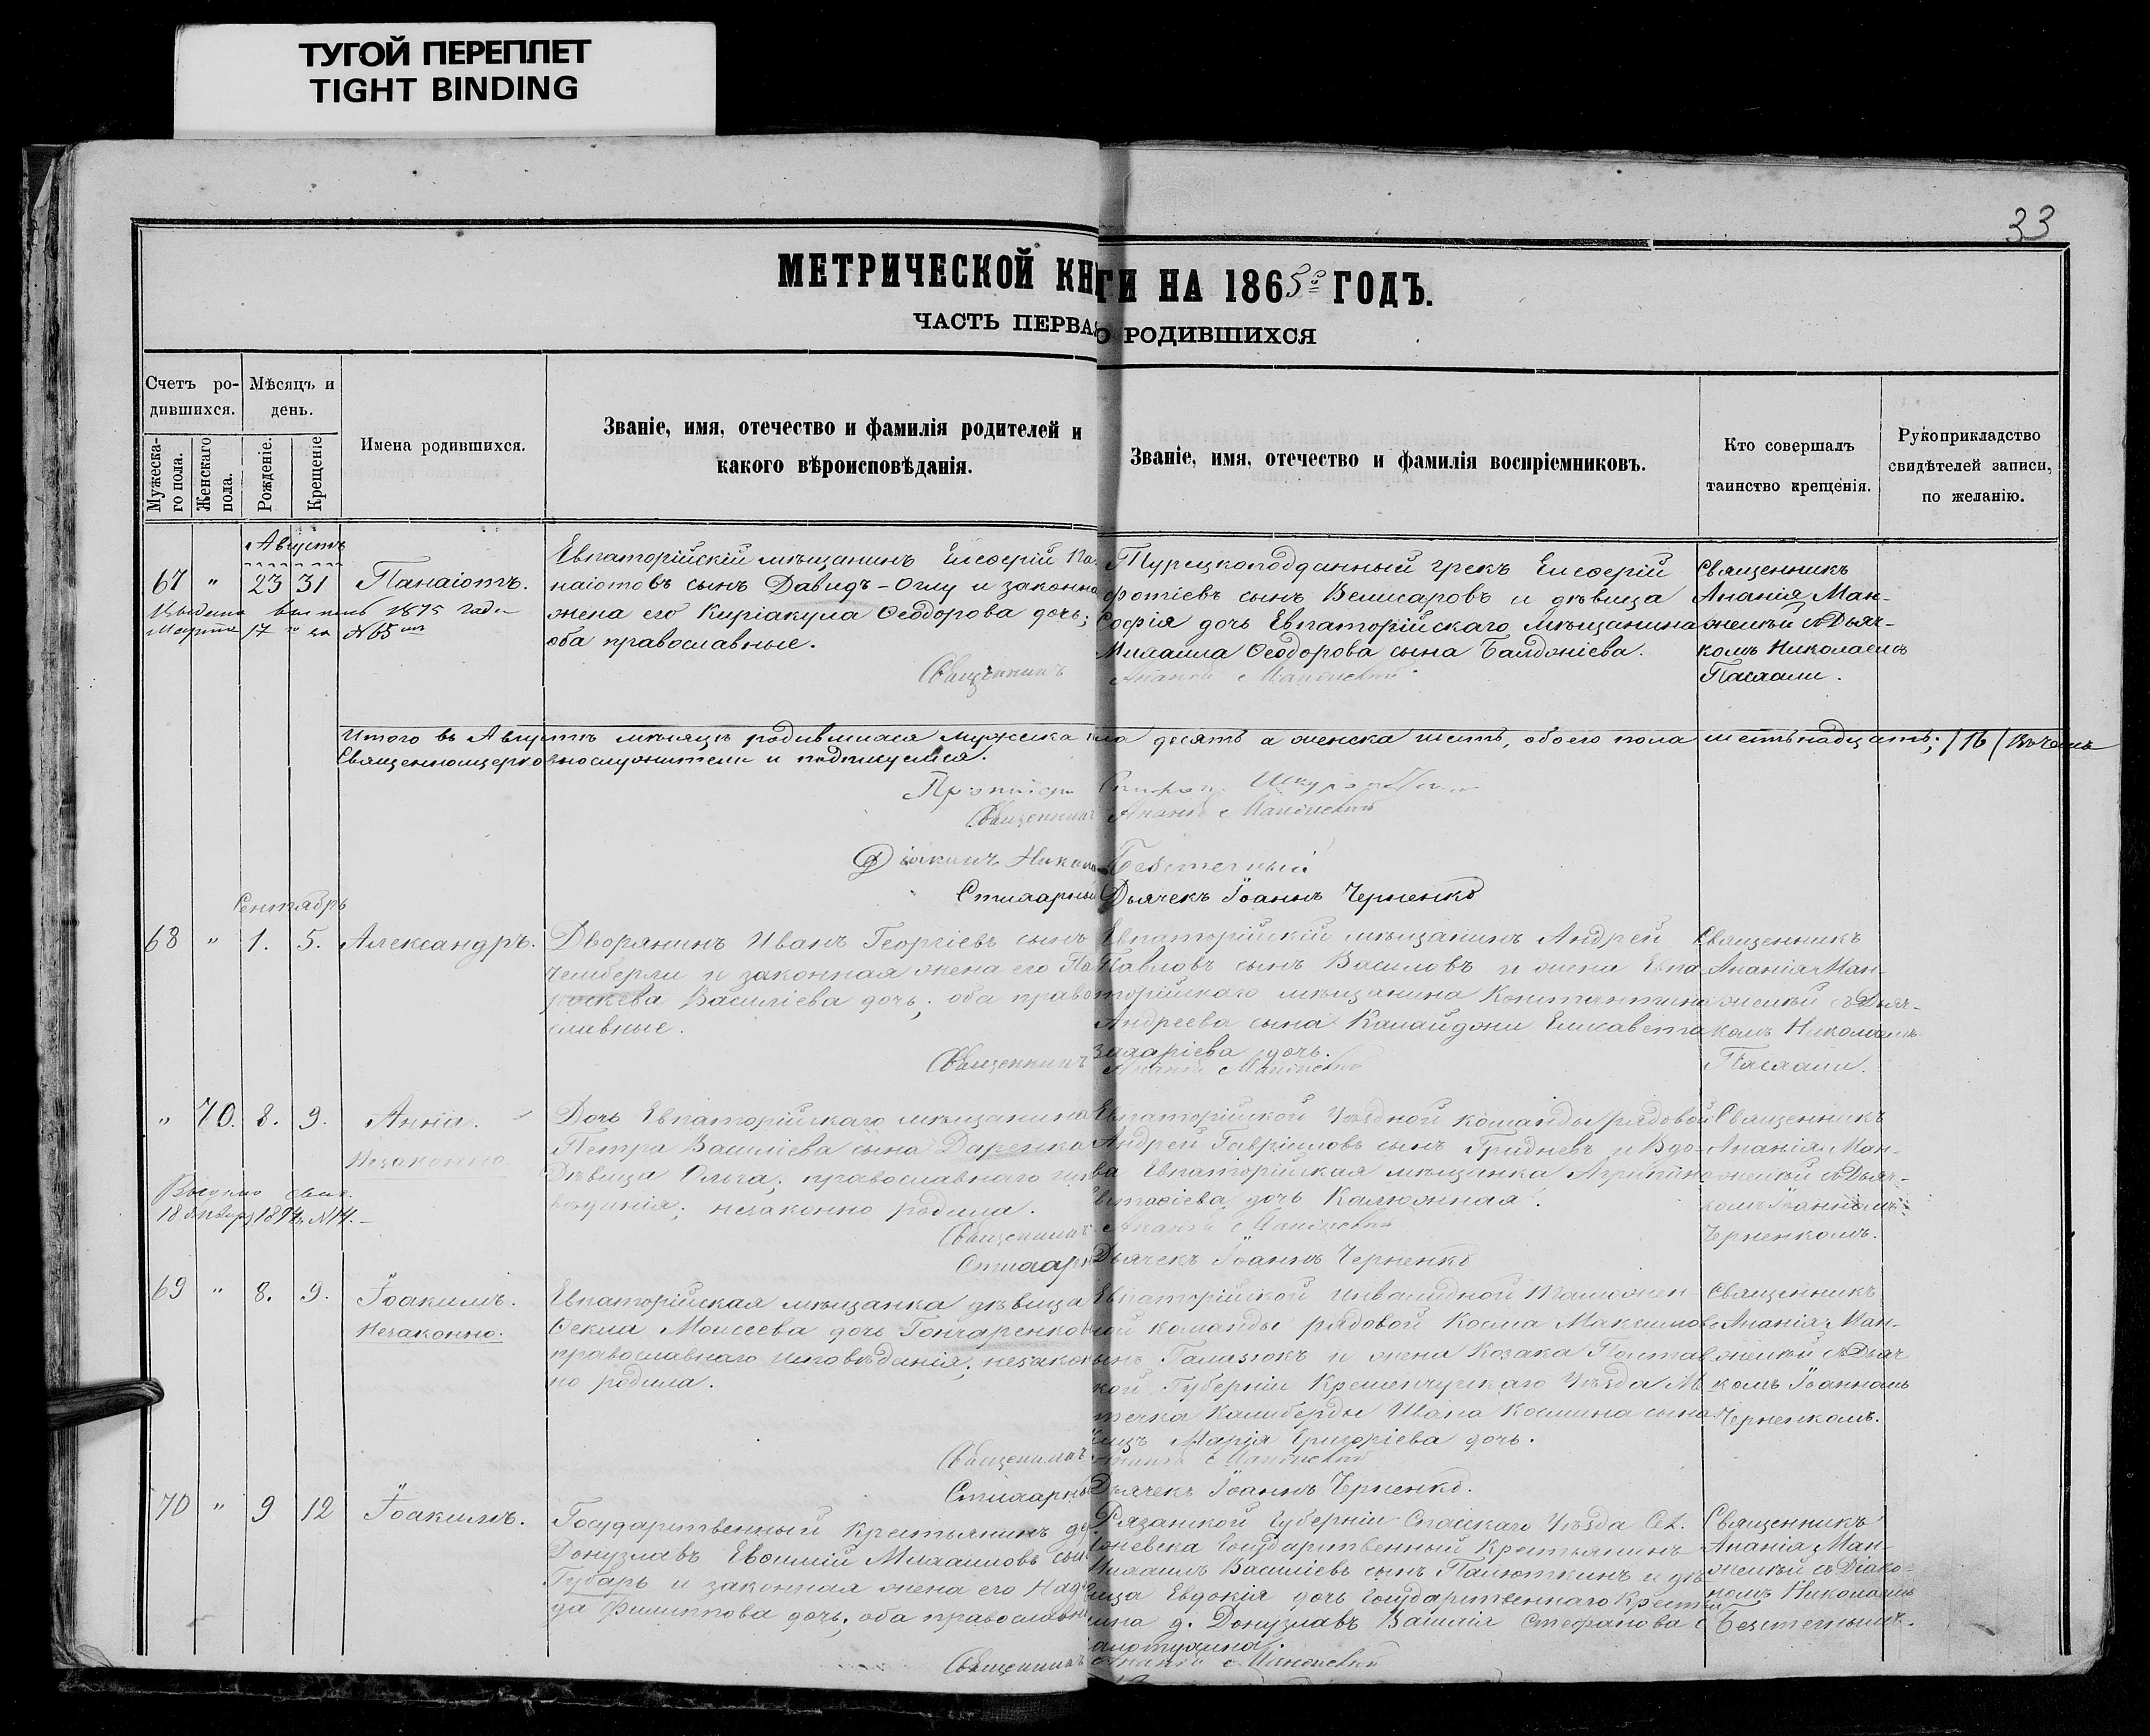 ТУГОЙ ПЕРЕПЛЕТ
TIGHT BINDING
33
МЕТРИЧЕСКОЙ КНИГИ НА 1865 ГОДЪ.
ЧАСТЬ ПЕРВАЯ О РОДИВШИХСЯ
Счетъ ро-
дившихся.
Мужеска-
го пола.
Женскаго
пола.
Мѣсяцъ и
день.
Рожденіе.
Крещеніе
Имена родившихся.
Званіе, имя, отечество и фамилія родителей и
какого вѣроисповѣданія.
Званіе, имя, отечество и фамилія воспріемниковъ.
Кто совершалъ
таинство крещенія.
Рукоприкладство
свидѣтелей записи,
по желанію.
Августъ
67 " 23 31 Панаіотъ.
Марта 17 № 65
Евпаторійскій мѣщанинъ Елеферій Па-
наіотовъ сынъ Давидъ-Оглу и законная
жена его Киріакула Ѳеодорова дочь;
оба православные.
Турецкоподданный грекъ Елеферій
Фотіевъ сынъ Велисаровъ и дѣвица
Софія дочь Евпаторійскаго мѣщанина
Михаила Ѳеодорова сына Балдоніева.
Священникъ
Ананія Ман-
желѣй съ Дьяч-
комъ Николаемъ
Пасхали.
Священникъ Ананій
Итого въ Августѣ мѣсяцѣ родившихся мужеска пола десять а женска шесть, обоего пола шестьнадцать; /16/ Въ чемъ
Священноцерковнослужители и подписуемся.
Священникъ Ананій
Діаконъ Николай Безстетный
Стихарный Дьячекъ Іоаннъ Черненко
Сентябрь
68 " 1. 5. Александръ.
Дворянинъ Иванъ Георгіевъ сынъ
Чемберли и законная жена его Па-
раскева Василіева дочь; оба право-
славные.
Евпаторійскій мѣщанинъ Андрей
Павловъ сынъ Василовъ и жена Евпа-
торійскаго мѣщанина Константина
Андреева сына Калайджи Елисавета
Захаріева дочь.
Священникъ
Ананія Ман-
желѣй съ Дьяч-
комъ Николаемъ
Пасхали.
Священникъ Ананій
" 70. 8. 9. Анна.
Незаконно.
18 Января 1874 № 14.
Дочь Евпаторійскаго мѣщанина
Петра Василіева сына Даренка
Дѣвица Ольга; православнаго испо-
вѣданія; незаконно родила.
Евпаторійской Уѣздной команды рядовой
Андрей Гавріиловъ сынъ Гридневъ и Вдо-
ва Евпаторійская мѣщанка Агрипина
Евтафіева дочь Калюжная.
Священникъ
Ананія Ман-
желѣй съ Дьяч-
комъ Іоанномъ
Черненкомъ.
Священникъ Ананій
Стихарный Дьячекъ Іоаннъ Черненко
69 " 8. 9. Іоакимъ.
Незаконно.
Евпаторійская мѣщанка дѣвица
Ѳекла Моисеева дочь Гончаренкова
православнаго исповѣданія; незакон-
но родила.
Евпаторійской Инвалидной Таможен-
ной команды рядовой Косма Максимовъ
сынъ Галазюкъ и жена Козака Полтав-
ской Губерніи Кременчугскаго Уѣзда Мѣ-
стечка Камберды Ивана Космина сына
Марія Григоріева дочь.
Священникъ
Ананія Ман-
желѣй съ Дьяч-
комъ Іоанномъ
Черненкомъ.
Священникъ Ананій
Стихарный Дьячекъ Іоаннъ Черненко.
70 " 9 12 Іоакимъ.
Государственный крестьянинъ де.
Донузлавъ Евфимій Михаиловъ сынъ
Губарь и законная жена его Надеж-
да Филиппова дочь; оба православные
Рязанской Губерніи Спасскаго Уѣзда Сел.
Государственный Крестьянинъ
Михаилъ Василіевъ сынъ Палюткинъ и дѣ-
вица Евдокія дочь Государственнаго Крестья-
нина д. Донузлавъ Василія Стефанова
Священникъ
Ананія Ман-
желѣй съ Діако-
номъ Николаемъ
Безстетнымъ.
Священникъ Ананій